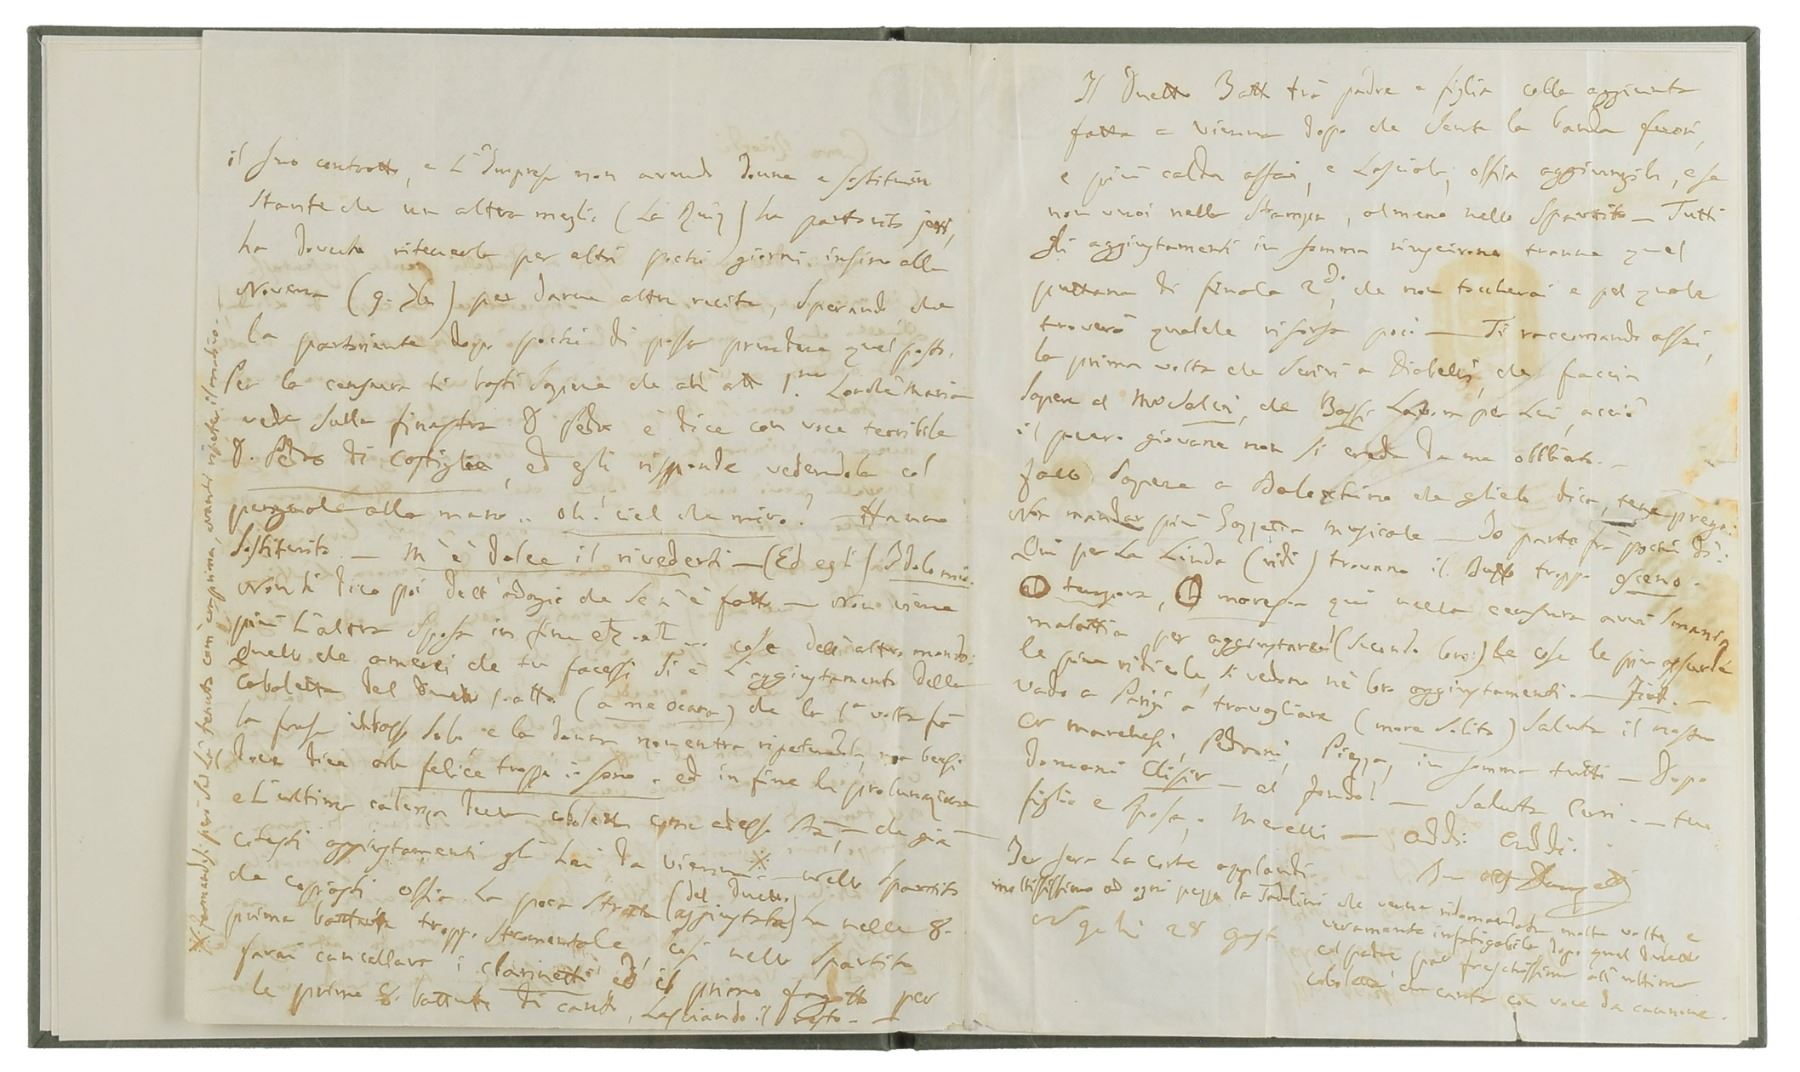 il suo contratto, e L'Impresa non avendo donna a sostituire
stante che un altra moglie (La) ha partorito jeri,
ha dovuto ritenerla per altri pochi giorni insino alla
Novena (9. 7bre) per darne altre recite, sperando, che
la partoriente dopo pochi dì possa prendere quel posto.
Per la censura ti basti sapere che all' att 1.mo Maria
vede dalla finestra D Pedro e dice con voce terribile
D. Pedro di Castiglia, ed egli risponde vedendola col
pugnale alla mano .. oh! ciel che miro! Hanno
sostituito — M'è dolce il rivederti — (Ed egli) Idolo mio.
Non ti dico poi dell' adagio che se n'è fatto — Non viene
più L'altra sposa in fine etz. etz... cose dell' altro mondo:
Quello che amerei che tu facessi si è L'aggiustamento della
Cabaletta del duetto 1. atto (a me ) che la 1a volta fà
la frase il basso solo e la donna non entra ripetendola, ma bensì
dice felice troppo io sono. ed in fine la
e L'ultima cadenza della cabaletta come adesso stà, — che già
cotesti aggiustamenti gli hai da Vienna ※ — nello Spartito
che copiasti ossia La poca stretta (del duetto) (aggiustata) ha nelle 8.
prima battute troppo strumentale, così nello spartito
farai cancellare i clarinetti ed il primo fagotto per
le prime 8. battute di canto, Lasciando il resto. —
※ fermandosi però
Il Duetto Batt trà padre e figlia colla aggiunta
fatta a Vienna dopo che sente la banda fuori,
è più calda assai, e Lasciala, ossia aggiungila, e se
non vuoi nella stampa, almeno nello Spartito — Tutti
gli aggiustamenti in somma tranne quel
puttana di finale 2do, che non toccherai e pel quale
troverò qualche risorsa poi — Ti raccomando assai,
la prima volta che scrivi a Diabelli, che faccia
sapere al, che per Lui, acciò
il povero giovane non si creda da me obbliato. —
Fallo sapere a che glielo dica, te ne prego:
Non mandar più Gazzetta musicale — Io parto frà pochi dì:
Qui per La Linda (ridi) trovano il Buffo troppo osceno.
O tempora, O mores qui nella censura avvi smania,
malattia per aggiustare (secondo loro:) le cose le più assurde
le più ridicole si vedono nè loro aggiustamenti. — Fiat. —
Vado a Parigi a travagliare (more solito) saluta il nostro
Cr Marchesi, Pedroni, Piazza, in somma tutti — Dopo
domani Elisir — al Fondo! — Saluta — tua
figlia e sposa, Merelli — addi addi.
Tuo aff Donizetti
Jer sera La corte applaudì
moltissimo ad ogni pezzo la Tadolini che venne ridomandata molte volte e
veramente infatigabile dopo quel duetto
col padre par freschissima all' ultima
cabaletta che canta con voce da cannone.
Napoli 28 agosto